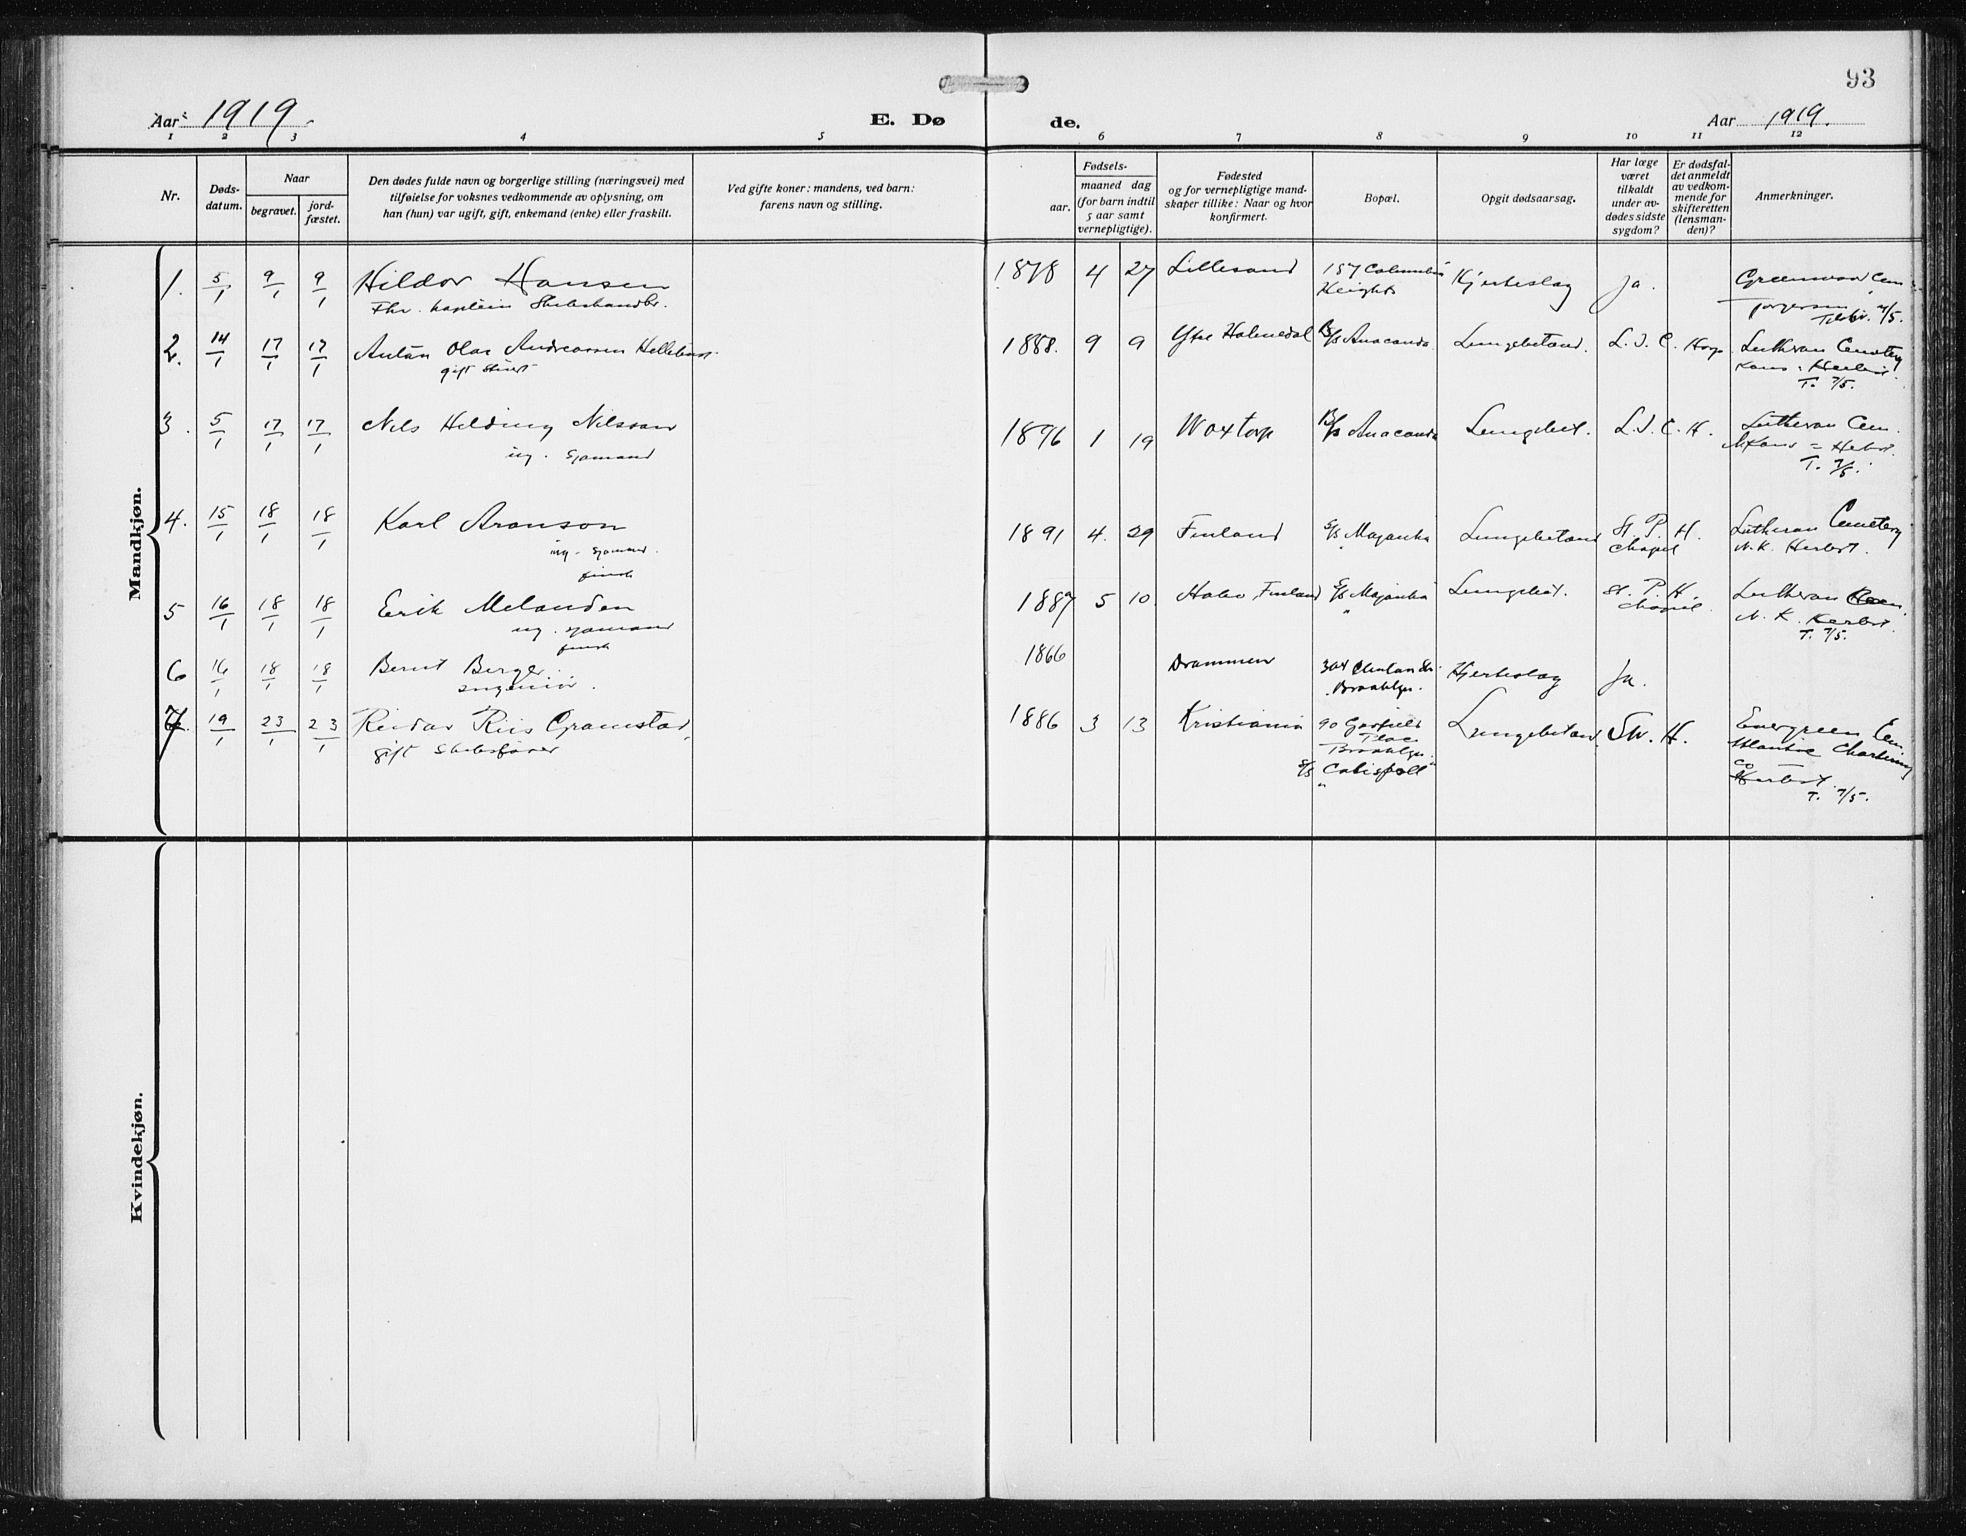 93
Aar 1919.
E. Dø
de.
Aar 1919.
1 2 3 4 5 6 7 8 9 10 11 12
Nr.
Døds-
datum.
Naar
begravet.
jord-
fæstet.
Den dødes fulde navn og borgerlige stilling (næringsvei) med
tilføielse for voksnes vedkommende av oplysning, om
han (hun) var ugift, gift, enkemand (enke) eller fraskilt.
Ved gifte koner: mandens, ved barn:
farens navn og stilling.
Fødsels-
aar.
maaned dag
(for barn indtil
5 aar samt
vernepligtige).
Fødested
og for vernepligtige mand-
skaper tillike: Naar og hvor
konfirmert.
Bopæl.
Opgit dødsaarsag.
Har læge
været
tilkaldt
under av-
dødes sidste
sygdom?
Er dødsfal-
det anmeldt
av vedkom-
mende for
skifteretten
(lensman-
den)?
Anmerkninger.
Mandkjøn.
1. 5/1 9/1 9/1 Hildor Hansen 1878 4 27 Lillesand 157 Columbia Hjerteslag Ja. Greenwood Cem
Fhr. kaptein Skibshandler. Heights
7/5.
2. 14/1 17/1 17/1 Anton Olai Andreassen 1888. 9 9 Ytre Holmedal B/S Anaconda Lungebetænd. L. I. C. Hosp. Lutheran Cemetery
gift
T. 7/5.
3. 5/1 17/1 17/1 Nils Hilding Nilsson 1896 1 19 Woxtorp B/S Anaconda Lungebet. L. I. C. H. Lutheran Cem.
ug. sjømand
T. 7/5.
4. 15/1 18/1 18/1 Karl Aronson 1891 4. 29 Finland S/S Lungebetænd St. P. H. Lutheran Cemetery
ug. sjømand. Chapel N. K. Herbst.
finsk
5 16/1 18/1 18/1 Erik Melanden 1887 5 10. Finland S/S " Lungebet. St. P. H. Lutheran Cem.
ug. sjømand Chapel. N. K. Herbst.
finsk T. 7/5.
6 16/1 18/1 18/1 Bernt Berger. 1866 Drammen 304 Clinton Str. Hjerteslag Ja.
Ingeniør. Brooklyn.
7 19/1 23/1 23/1 Reidar Riis Gramstad, 1886 3 13 Kristiania 90 Garfield Lungebetænd. Sw. H. Evergreen Cem.
gift Skibsfører Place Atlantic Chartering
Brooklyn. Co
S/S Calispell Herbst.
" T. 7/5.
Kvindekjøn.